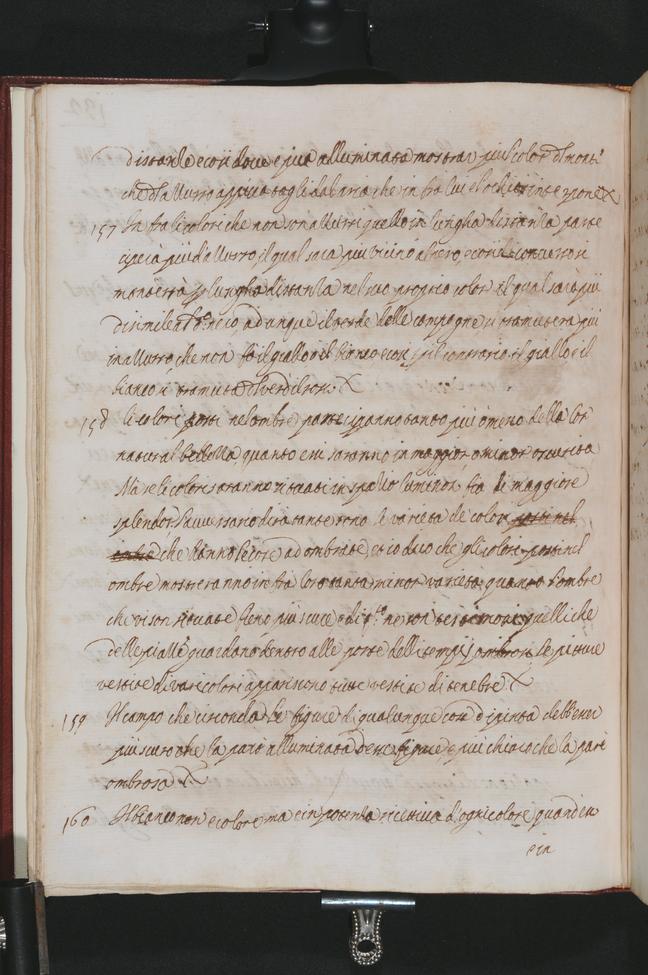 distantia e così dove è piu alluminata mostra piu'l color d monti
che d l'azurro apparta togli dal aria che in fra lui e l'ochio s'interpone
157 In fra li colori che non sono azurri quello in lungha distantia parte
cipera piu d'azurro, il qual sara piu vicino al nero, e così di converso si
mantera p lungha distantia nel suo proprio colore il qual sara piu
dissimile al d.º nero adunque il verde delle campagne si tramutera piu
in azurro, che non fa il giallo o il bianco e così p il contrario il giallo e il
bianco si tramuta il verde il rosso
158 li colori posti nel ombre parteciparanno tanto piu o meno della lor
natural bellezza, quanto essi saranno in maggior, o minor oscurita
Ma se li colori saranno situati in spatio luminoso fia di maggiore
splendor l'aversario di tante sono le varieta de colori posti nel
ombre che hanno le cose adombrate, et io dico che gli colori posti nel
ombre mostreranno in fra loro tanta minor varieta, quanto l'ombre
che vi son situate, sieno piu scure e di q.º ne son testimoni quelli che
delle piazze guardano dentro alle porte delli tempj ombrosi le pitture
vestite di vari colori appariscono tutte vestite di tenebre
159 Il campo che circonda le figure di qualunque cosa dipinta debbe esser
piu scuro che la parte alluminata d esse figure e piu chiaro che la parte
ombrosa
160 Il bianco non e colore ma e in potentia ricettiva d'ogni colore quando e
e in